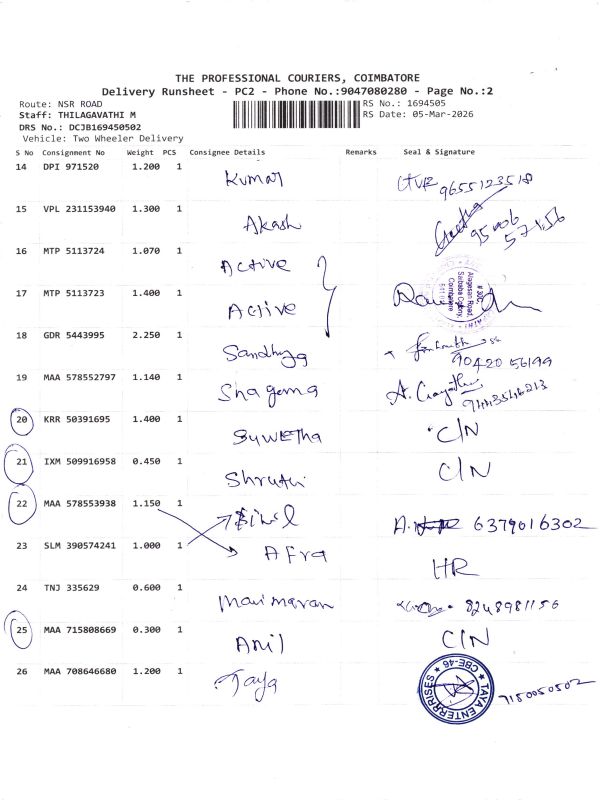 THE PROFESSIONAL COURIERS, COIMBATORE
Delivery Runsheet - PC2 - Phone No.:9047080280 - Page No.:2
Route: NSR ROAD
RS No.: 1694505
Staff: THILAGAVATHI M
RS Date: 05-Mar-2026
DRS No.: DCJB169450502
Vehicle: Two Wheeler Delivery
S No Consignment No Weight PCS Consignee Details Remarks Seal & Signature
14 DPI 971520 1.200 1 Kumar 9655123518
15 VPL 231153940 1.300 1 Akash 95006 57156
16 MTP 5113724 1.070 1 Active
17 MTP 5113723 1.400 1 Active
# 30C, Alagesan Road, Saibaba Colony, Coimbatore
18 GDR 5443995 2.250 1 Sandhya 90420 56199
19 MAA 578552797 1.140 1 Shagema
20 KRR 50391695 1.400 1 Suwetha C/N
21 IXM 509916958 0.450 1 Shruthi C/N
22 MAA 578553938 1.150 1 6379016302
23 SLM 390574241 1.000 1 Afra HR
24 TNJ 335629 0.600 1 Manimaran 8248981156
25 MAA 715808669 0.300 1 Anil C/N
26 MAA 708646680 1.200 1 Taya TAYA ENTERRISES CBE-46 7150050502